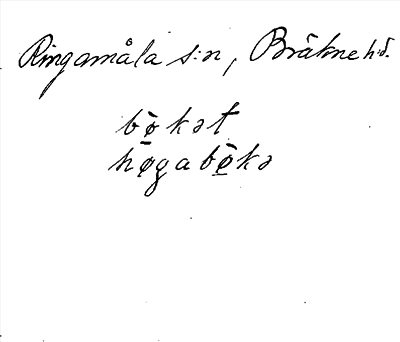 Ringamåla s:n, Bräkne h:d.
bø̀kət
hø̱gabø̱̀kə